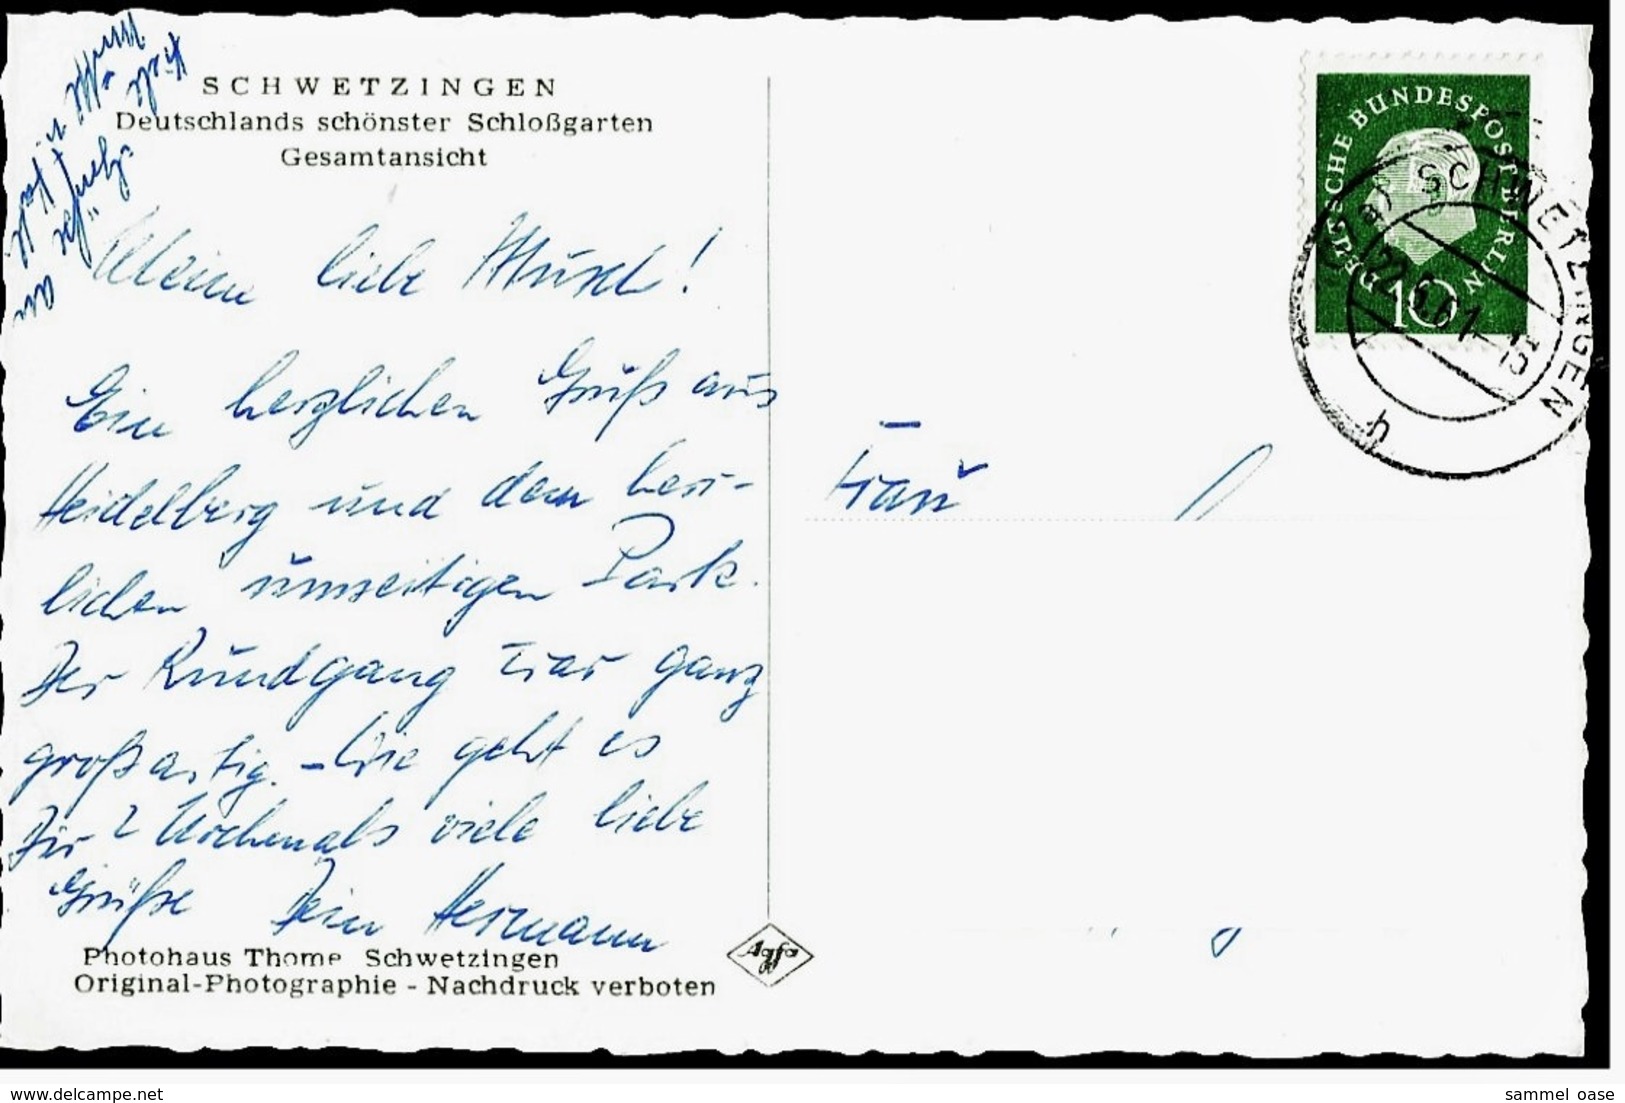 SCHWETZINGEN
Deutschlands schönster Schloßgarten
Gesamtansicht
Meine liebe Musch!
Ein herzlichen Gruß aus
Heidelberg und dem herr-
lichen umseitigen Park.
Der Rundgang war ganz
großartig. – Wie geht es
Dir? Nochmals viele liebe
Grüße Dein Hermann
Photohaus Thome Schwetzingen
Original-Photographie - Nachdruck verboten
Agfa
Frau
DEUTSCHE BUNDESPOST BERLIN
10
SCHWETZINGEN
22.6.61-15
h
sammel oase
www.delcampe.net